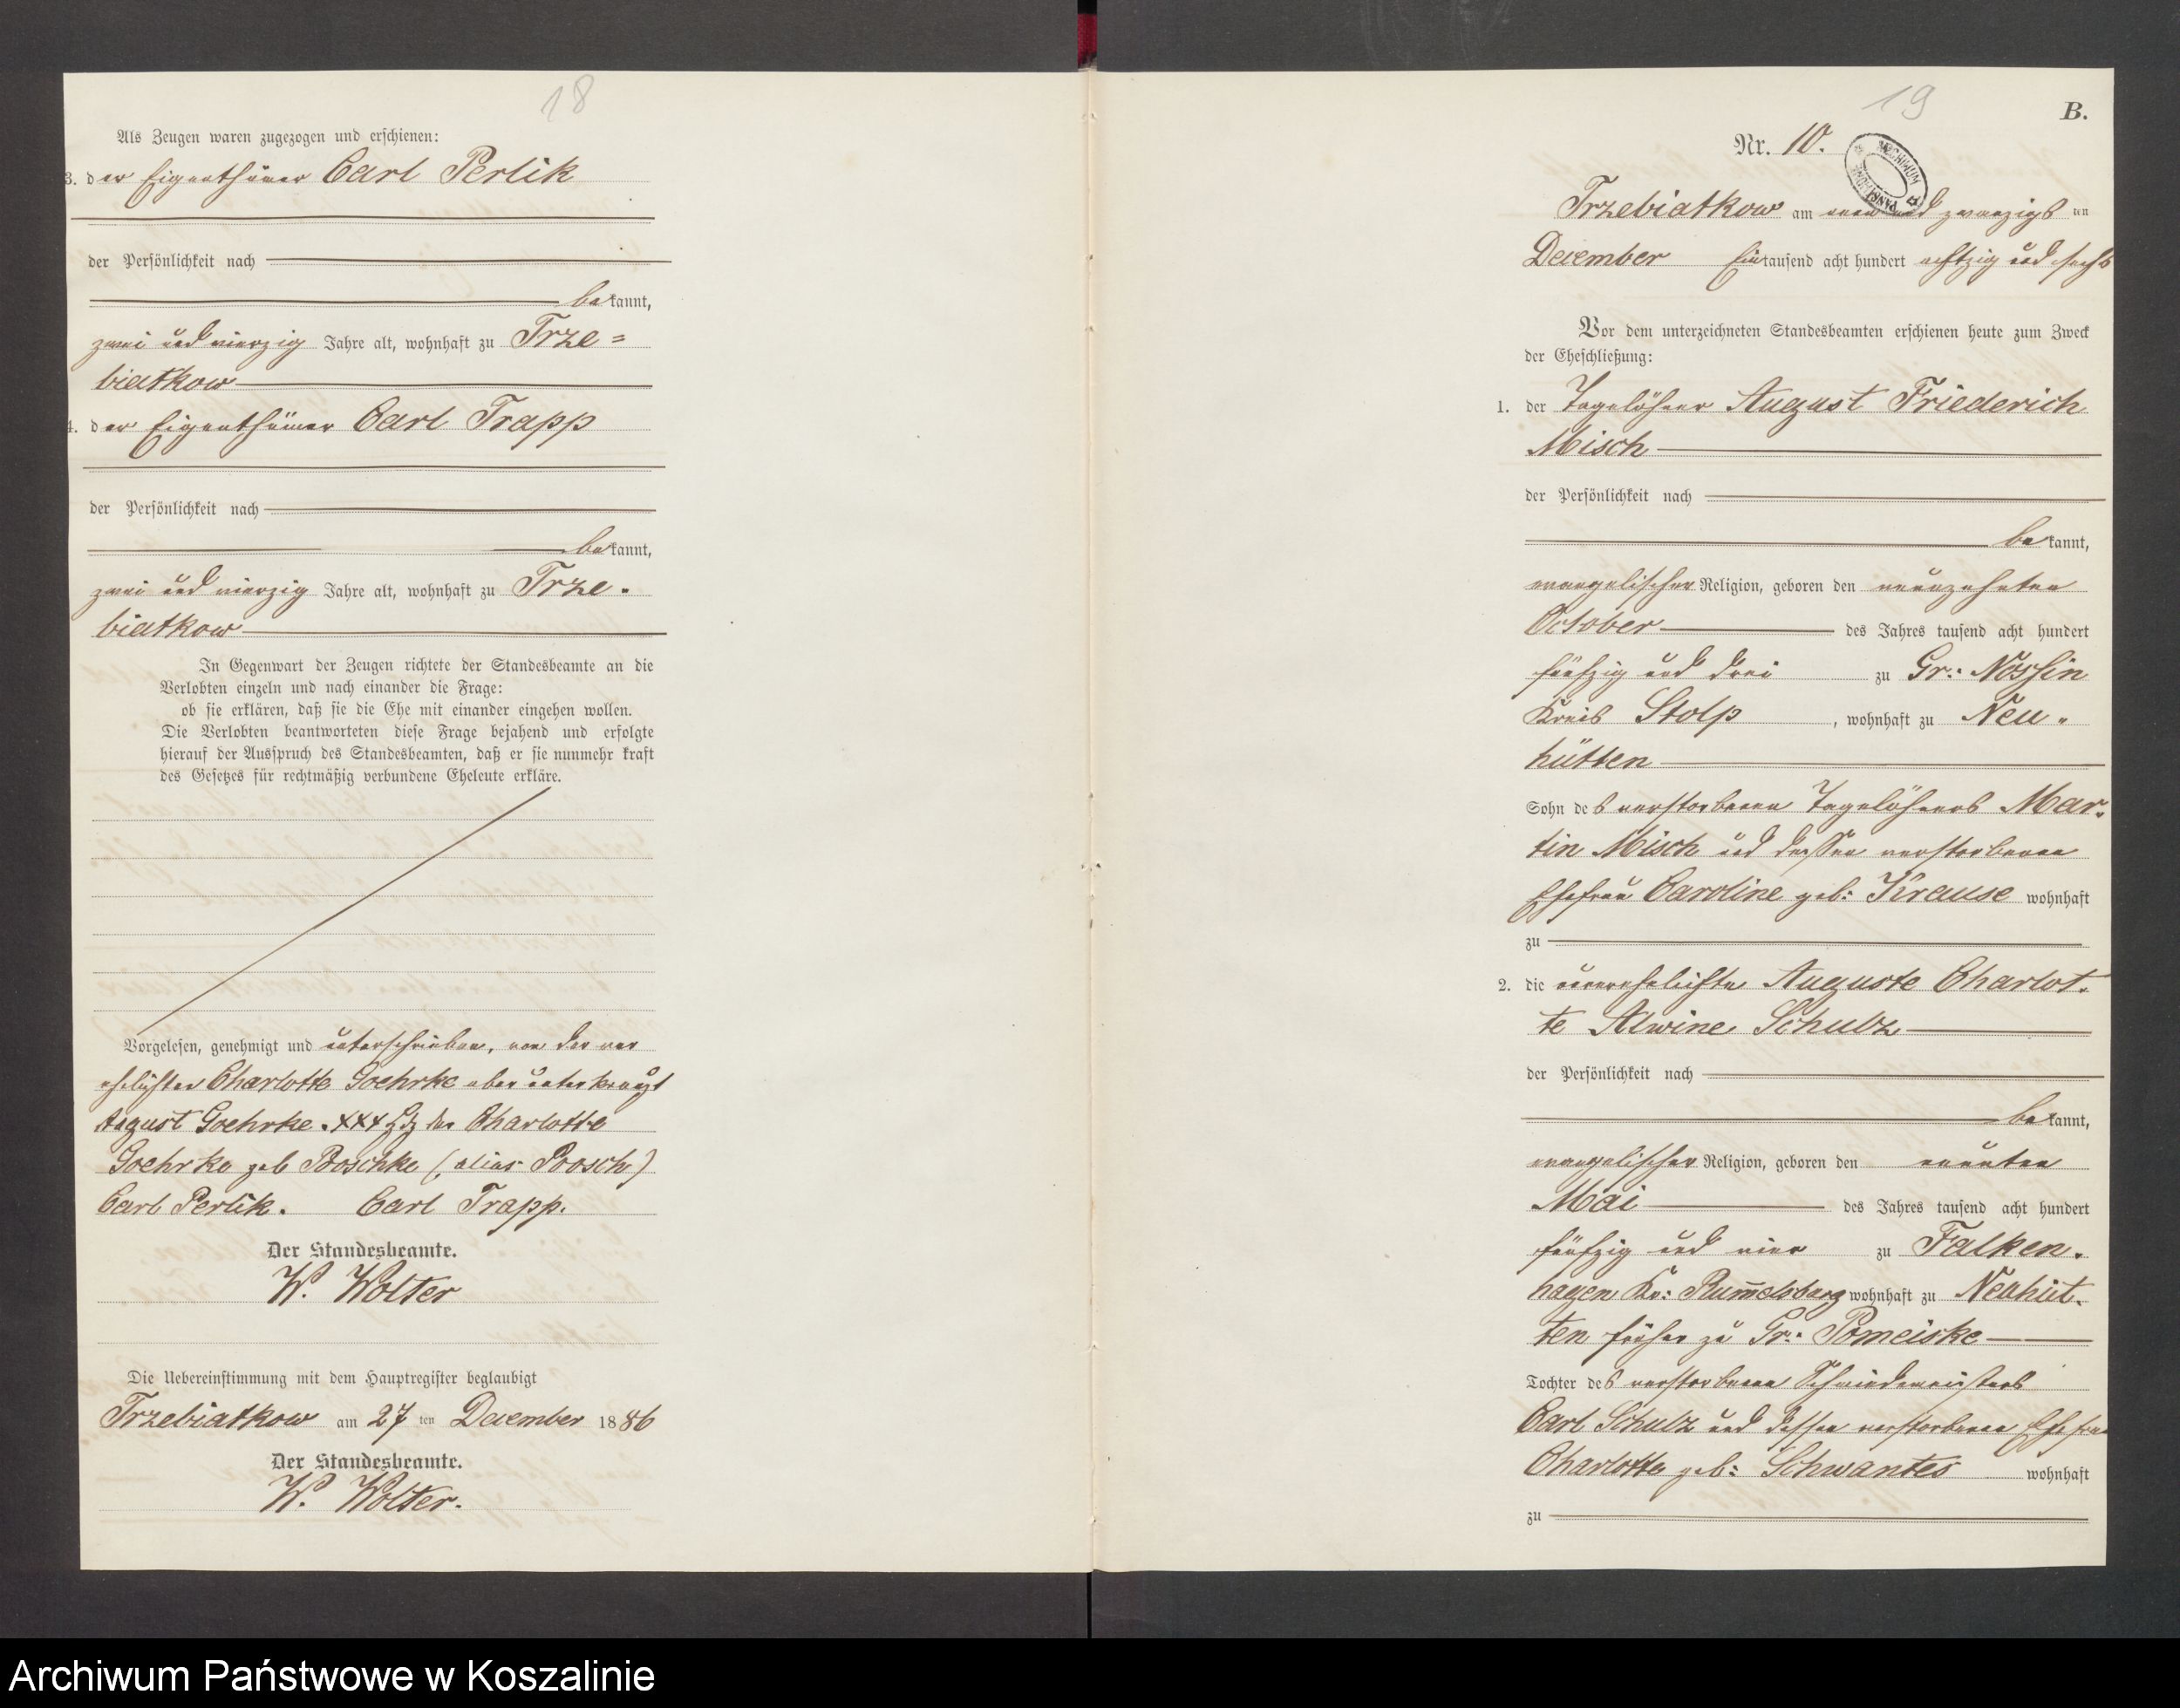 18
Als Zeugen waren zugezogen und erschienen:
3. der Eigenthümer Carl Perlik
der Persönlichkeit nach
bekannt,
zwei und vierzig Jahre alt, wohnhaft zu Trze=
biatkow
4. der Eigenthümer Carl Trapp
der Persönlichkeit nach
bekannt,
zwei und vierzig Jahre alt, wohnhaft zu Trze-
biatkow
In Gegenwart der Zeugen richtete der Standesbeamte an die
Verlobten einzeln und nach einander die Frage:
ob sie erklären, daß sie die Ehe mit einander eingehen wollen.
Die Verlobten beantworteten diese Frage bejahend und erfolgte
hierauf der Ausspruch des Standesbeamten, daß er sie nunmehr kraft
des Gesetzes für rechtmäßig verbundene Eheleute erkläre.
Vorgelesen, genehmigt und unterschrieben, von der ver
ehelichten Charlotte Goehrke aber unterkreuzt
August Goehrke. XXX Hdz der Charlotte
Goehrke geb Poschke (alias Poosch)
Carl Perlik. Carl Trapp.
Der Standesbeamte.
W. Wolter
Die Uebereinstimmung mit dem Hauptregister beglaubigt
Trzebiatkow am 27 ten December 1886
Der Standesbeamte.
W. Wolter.
19
B.
Nr. 10.
ARCHIWUM PAŃSTWOWE
Trzebiatkow am und zwanzigsten
December Eintausend acht hundert achtzig und sechs
Vor dem unterzeichneten Standesbeamten erschienen heute zum Zweck
der Eheschließung:
1. der Tagelöhner August Friederich
Misch
der Persönlichkeit nach
bekannt,
evangelischer Religion, geboren den neunzehnten
October des Jahres tausend acht hundert
fünfzig und drei zu Gr: Nossin
Kreis Stolp, wohnhaft zu Neu-
hütten
Sohn des verstorbenen Tagelöhners Mar-
tin Misch und dessen verstorbenen
Ehefrau Caroline geb: Krause wohnhaft
zu
2. die unverehelichte Auguste Charlot-
te Alwine Schulz
der Persönlichkeit nach
bekannt,
evangelischer Religion, geboren den neunten
Mai des Jahres tausend acht hundert
fünfzig und vier zu Falken-
hagen Kr: Rum̄elsburg wohnhaft zu Neuhüt-
ten früher zu Gr: Pomeiske
Tochter des verstorbenen Schmiedemeisters
Carl Schulz und dessen verstorbenen Ehefrau
Charlotte geb: Schwantes wohnhaft
zu
Archiwum Państwowe w Koszalinie